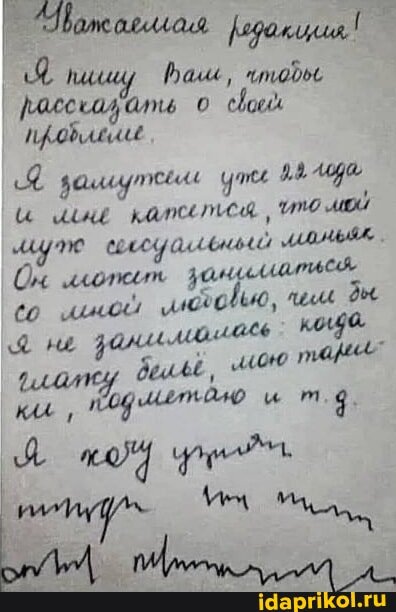 Уважаемая редакция!
Я пишу Вам, чтобы
рассказать о своей
проблеме.
Я замужем уже 22 года
и мне кажется, что мой
муж сексуальный маньяк.
Он может заниматься
со мной любовью, чем бы
я не занималась: когда
глажу бельё, мою тарел-
ки, подметаю и т.д.
Я хочу узнать
idaprikol.ru